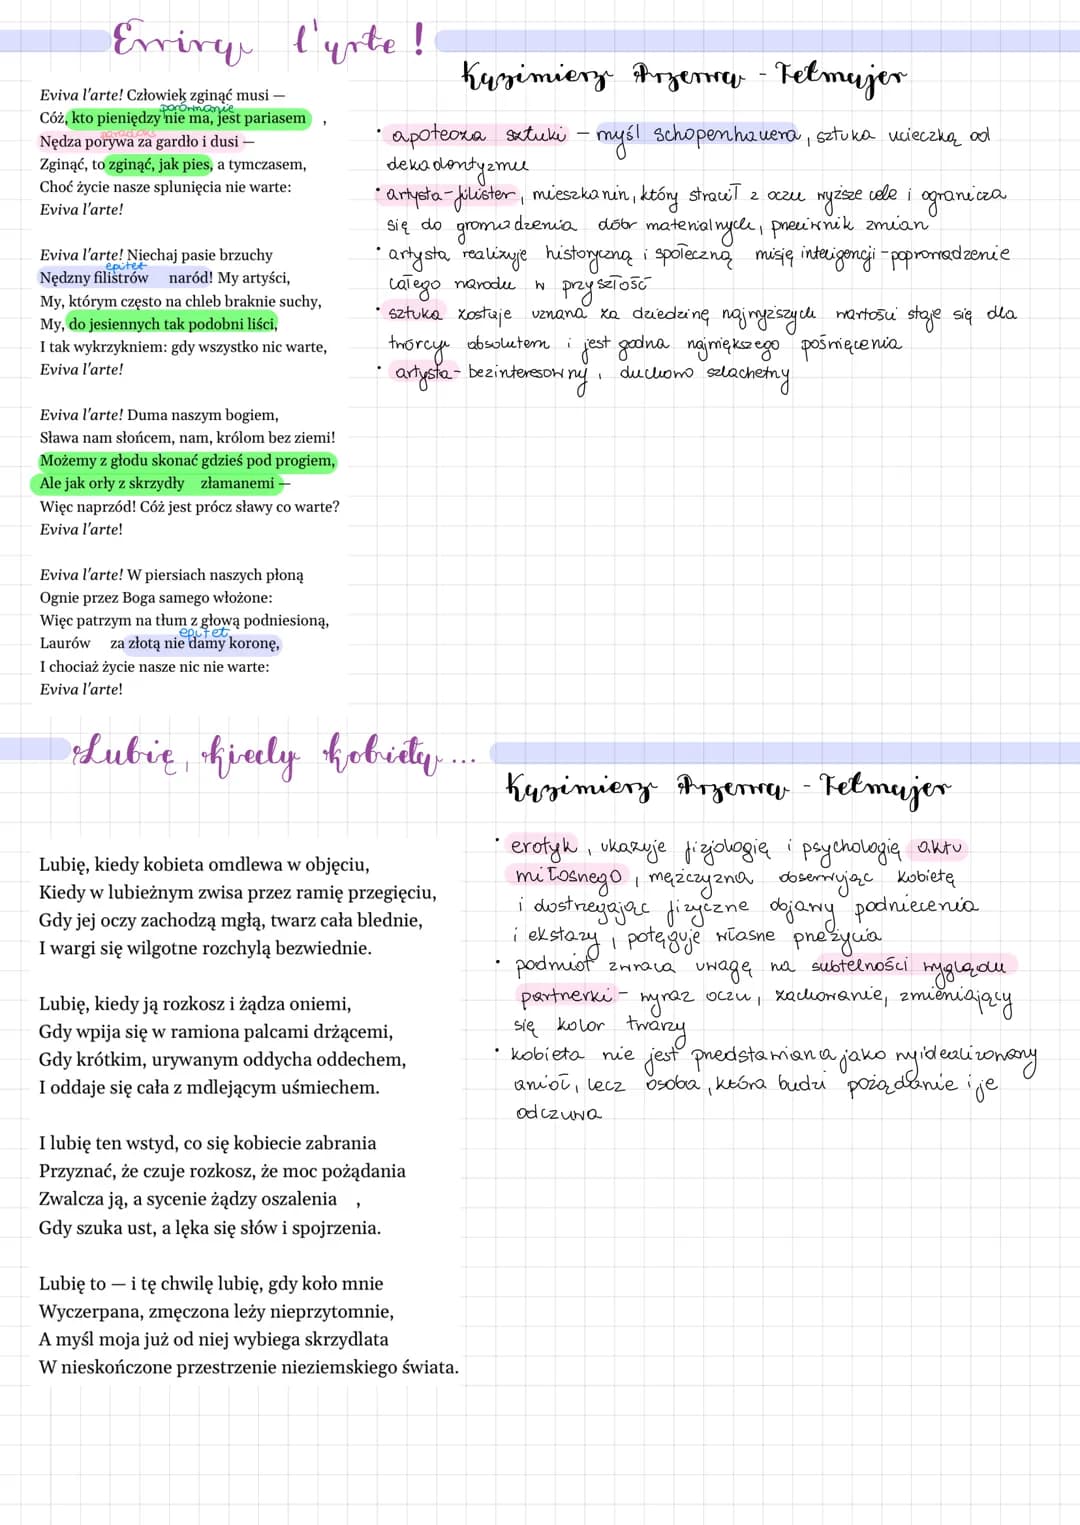 Eviva l'arte!
Kazimierz Przerwa - Tetmajer
Eviva l'arte! Człowiek zginąć musi —
porównanie
Cóż, kto pieniędzy nie ma, jest pariasem ,
paradoks
Nędza porywa za gardło i dusi —
Zginąć, to zginąć, jak pies, a tymczasem,
Choć życie nasze splunięcia nie warte:
Eviva l'arte!
Eviva l'arte! Niechaj pasie brzuchy
epitet
Nędzny filistrów naród! My artyści,
My, którym często na chleb braknie suchy,
My, do jesiennych tak podobni liści,
I tak wykrzykniem: gdy wszystko nic warte,
Eviva l'arte!
Eviva l'arte! Duma naszym bogiem,
Sława nam słońcem, nam, królom bez ziemi!
Możemy z głodu skonać gdzieś pod progiem,
Ale jak orły z skrzydły złamanemi —
Więc naprzód! Cóż jest prócz sławy co warte?
Eviva l'arte!
Eviva l'arte! W piersiach naszych płoną
Ognie przez Boga samego włożone:
Więc patrzym na tłum z głową podniesioną,
epitet
Laurów za złotą nie damy koronę,
I chociaż życie nasze nic nie warte:
Eviva l'arte!
• apoteoza sztuki – myśl Schopenhauera, sztuka ucieczką od
dekadentyzmu
• artysta-filister, mieszkanin, który stracił z oczu wyższe cele i ogranicza
się do gromadzenia dóbr materialnych, przeciwnik zmian
• artysta realizuje historyczną i społeczną misję inteligencji - poprowadzenie
całego narodu w przyszłość
• sztuka zostaje uznana za dziedzinę najwyższych wartości staje się dla
twórcy absolutem i jest godna największego poświęcenia
• artysta - bezinteresowny, duchowo szlachetny
Lubię, kiedy kobieta...
Kazimierz Przerwa - Tetmajer
Lubię, kiedy kobieta omdlewa w objęciu,
Kiedy w lubieżnym zwisa przez ramię przegięciu,
Gdy jej oczy zachodzą mgłą, twarz cała blednie,
I wargi się wilgotne rozchylą bezwiednie.
Lubię, kiedy ją rozkosz i żądza oniemi,
Gdy wpija się w ramiona palcami drżącemi,
Gdy krótkim, urywanym oddycha oddechem,
I oddaje się cała z mdlejącym uśmiechem.
I lubię ten wstyd, co się kobiecie zabrania
Przyznać, że czuje rozkosz, że moc pożądania
Zwalcza ją, a sycenie żądzy oszalenia ,
Gdy szuka ust, a lęka się słów i spojrzenia.
Lubię to — i tę chwilę lubię, gdy koło mnie
Wyczerpana, zmęczona leży nieprzytomnie,
A myśl moja już od niej wybiega skrzydlata
W nieskończone przestrzenie nieziemskiego świata.
• erotyk, ukazuje fizjologię i psychologię aktu
miłosnego, mężczyzna obserwując kobietę
i dostrzegając fizyczne objawy podniecenia
i ekstazy, potęguje własne przeżycia
• podmiot zwraca uwagę na subtelności wyglądu
partnerki – wyraz oczu, zachowanie, zmieniający
się kolor twarzy
• kobieta nie jest przedstawiana jako wyidealizowany
anioł, lecz osoba, która budzi pożądanie i je
odczuwa